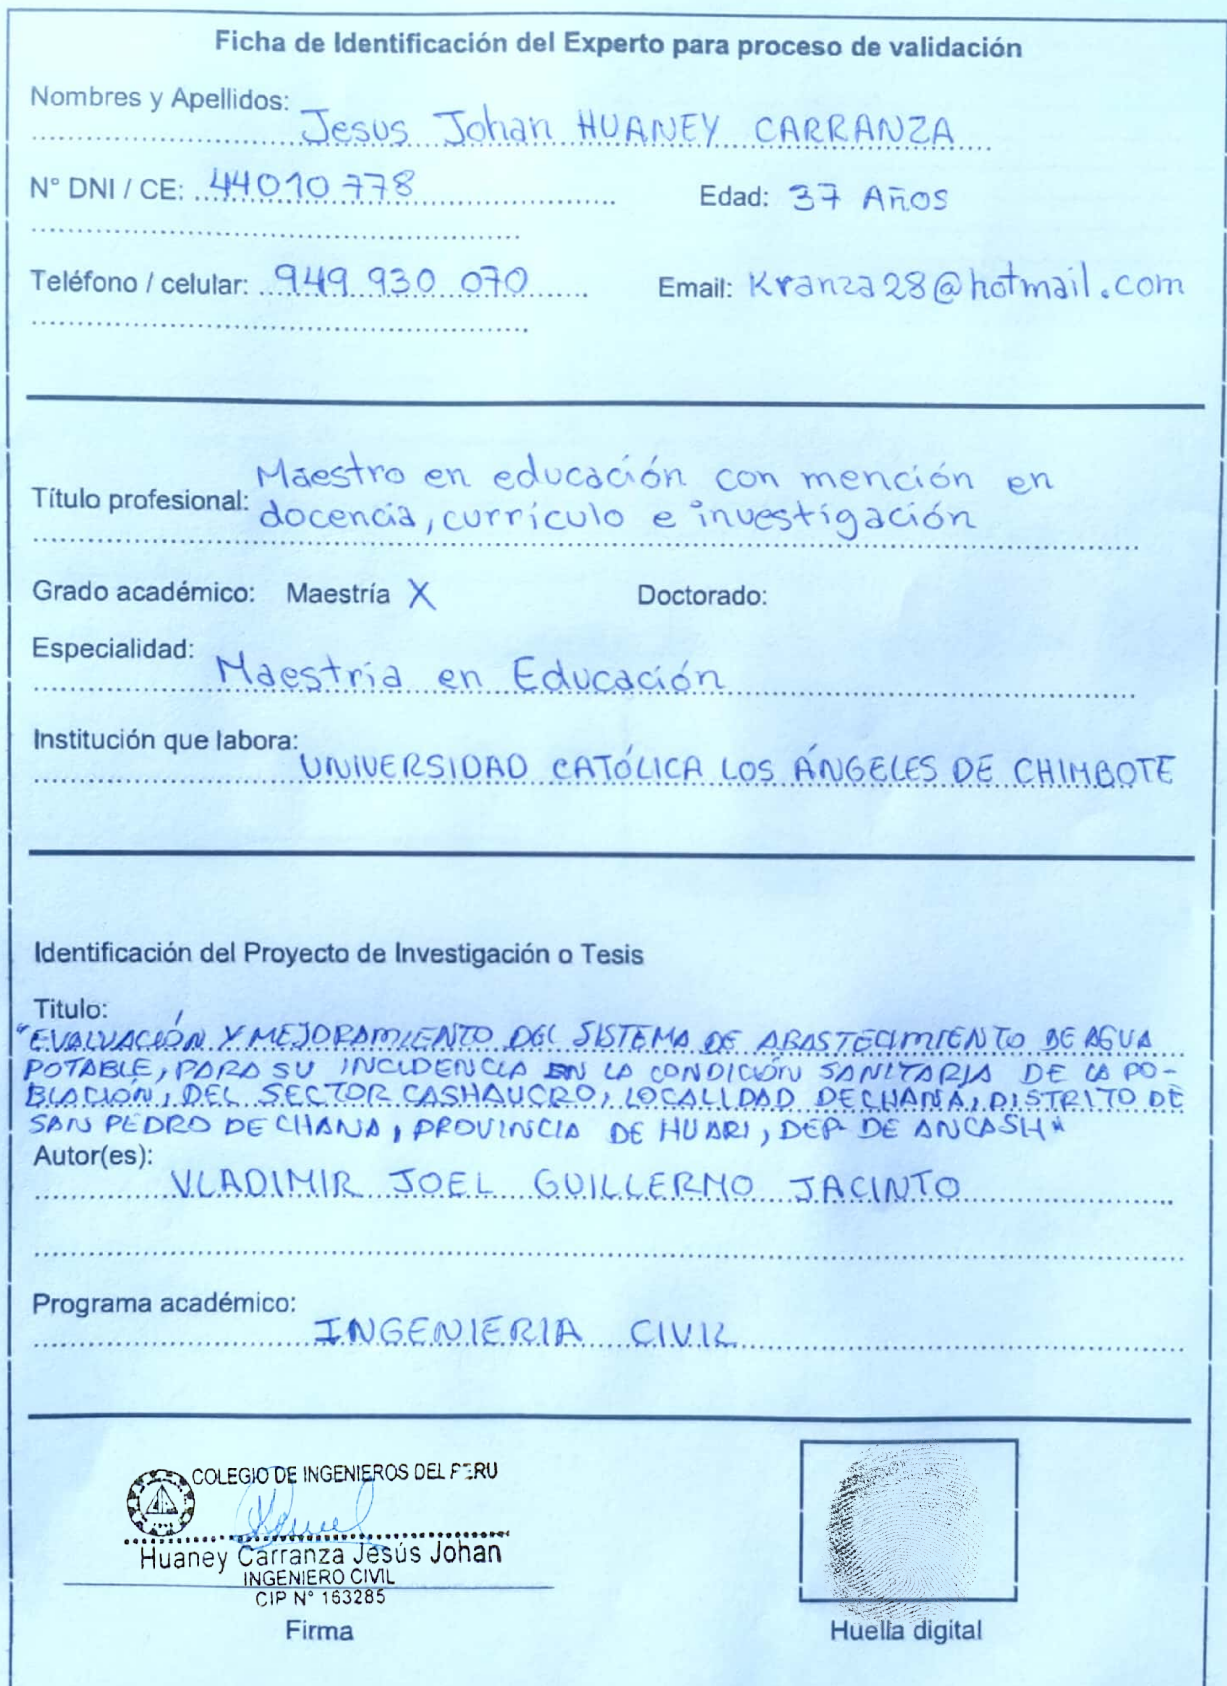 Ficha de Identificación del Experto para proceso de validación
Nombres y Apellidos:
Jesus Johan HUANEY CARRANZA
N° DNI / CE: 44010778 Edad: 37 Años
Teléfono / celular: 949 930 070 Email: Kranza28@hotmail.com
Maestro en educación con mención en
Título profesional: docencia, currículo e investigación
Grado académico: Maestría X Doctorado:
Especialidad:
Maestría en Educación
Institución que labora:
UNIVERSIDAD CATÓLICA LOS ÁNGELES DE CHIMBOTE
Identificación del Proyecto de Investigación o Tesis
Titulo:
"EVALUACIÓN Y MEJORAMIENTO DEL SISTEMA DE ABASTECIMIENTO DE AGUA
POTABLE, PARA SU INCIDENCIA EN LA CONDICIÓN SANITARIA DE LA PO-
BLACIÓN, DEL SECTOR CASHAUCRO, LOCALIDAD DE CHANA, DISTRITO DE
SAN PEDRO DE CHANA, PROVINCIA DE HUARI, DEP. DE ANCASH"
Autor(es):
VLADIMIR JOEL GUILLERMO JACINTO
Programa académico:
INGENIERIA CIVIL
COLEGIO DE INGENIEROS DEL PERU
Huaney Carranza Jesús Johan
INGENIERO CIVIL
CIP N° 163285
Firma
Huella digital